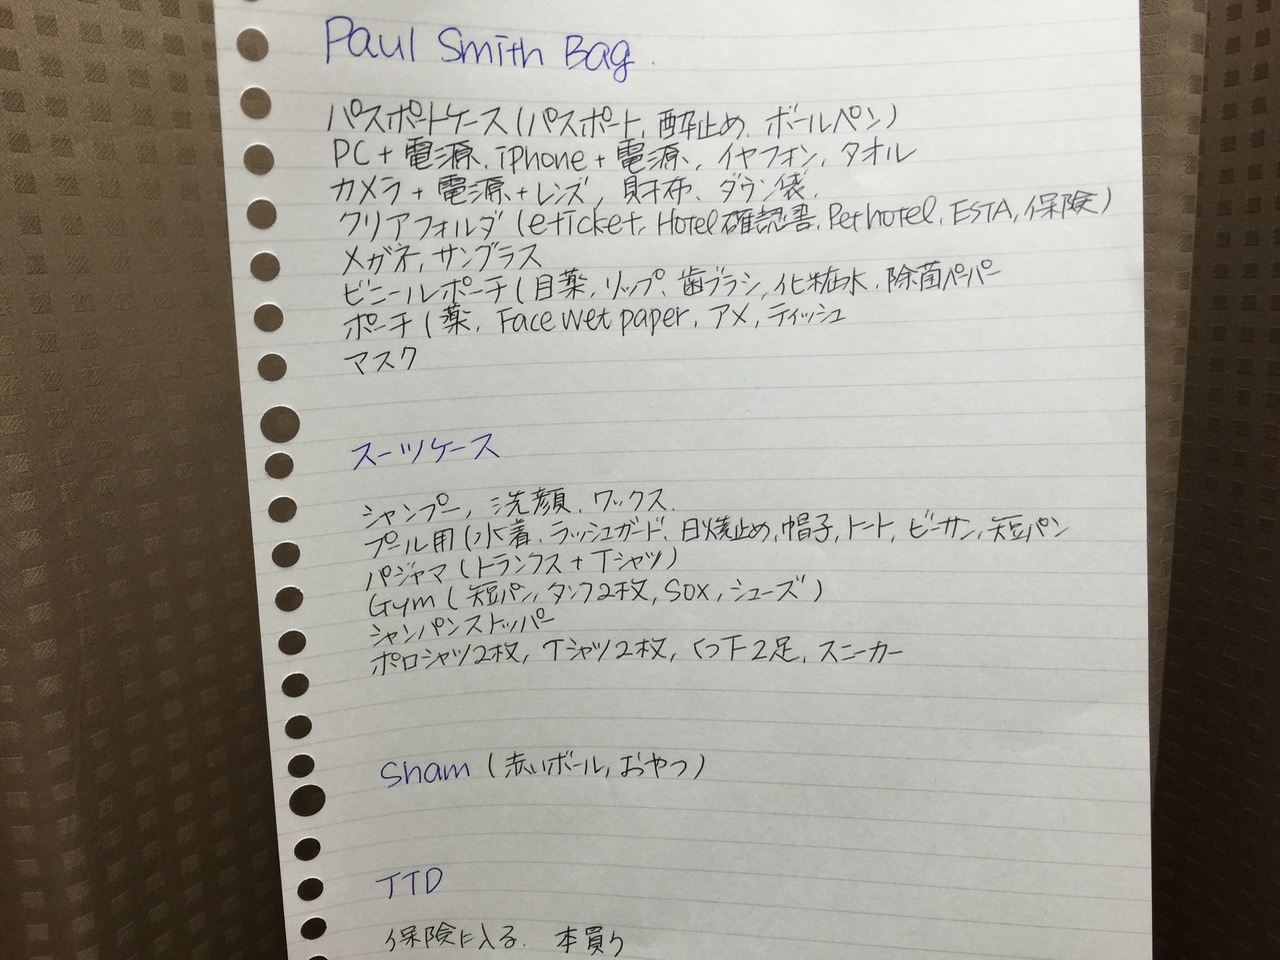 Paul Smith Bag.
パスポートケース(パスポート, 酔止め、ボールペン)
PC+電源、iPhone+電源、イヤフォン, タオル
カメラ+電源+レンズ, 財布、ダウン袋,
クリアフォルダ(eticket, Hotel確認書, Pet hotel, ESTA, 保険)
メガネ, サングラス
ビニールポーチ(目薬, リップ、歯ブラシ, 化粧水, 除菌ペーパー
ポーチ(薬, Face wet paper, アメ, ティッシュ
マスク
スーツケース
シャンプー, 洗顔、ワックス.
プール用(水着、ラッシュガード、日焼止め, 帽子, トート, ビーサン, 短パン
パジャマ(トランクス+Tシャツ)
Gym(短パン, タンク2枚, SOX, シューズ)
シャンパンストッパー
ポロシャツ2枚, Tシャツ2枚, くつ下2足, スニーカー
Sham(赤いボール, おやつ)
TTD
保険に入る. 本買う